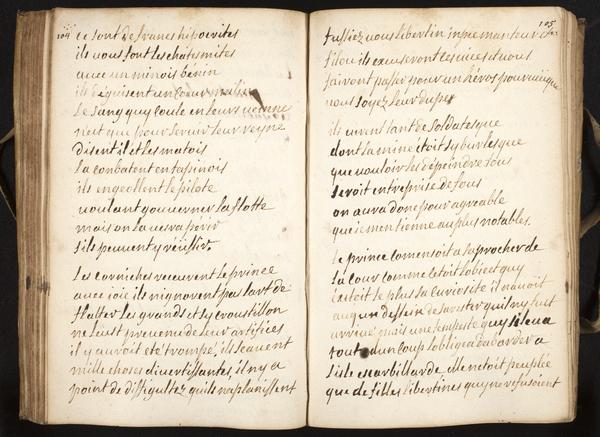 104
ce sont de francs hipocrites
ils vous font les chatemites
avec un minois bénin
ils déguisent un coeur malin
le sang quy coule en leurs veinne
n'est que pour servir leur reyne
disent il et les matois
la conbatent en tapinois
ils engeollent le pilote
voulant gouverner la flotte
mais on la verra périr
s'ils peuvent y réüssir.
Les corniches receurent le prince
avec joie ils nignorent pas lart de
flatter les grands et sy croustillon
ne leust prevenu de leur artifices
il y auroit eté trompé, ils sçavent
mille choses divertissantes, il ny a
point de diffigultez quils naplanissent
105
fussiez vous libertin inpie manteur
filou ils excuseront les vices et vous
fairont passer pour un héros pourveu que
vous soyez leur dupe
ils virent tant de soldatesque
dont la mine étoit sy burlesque
que vouloir les dépeindre tous
seroit entreprise de fous
on aura donc pour agreable
que je mentienne au plus notables.
le prince comensoit a saprocher de
la cour comme cetoit lobiect quy
exitoit le plus sa curiosité il navoit
aucun dessein de sarester quil ny fust
arrivé mais une tempeste quy sileva
tout dun coup lobligea daborder a
lisle escarbillarde elle netoit peuplée
que de filles libertines quy ne refusoient